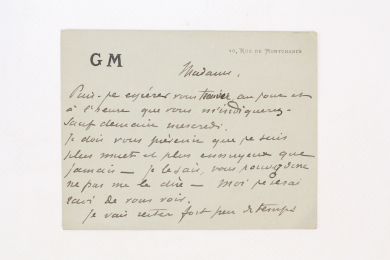 GM
10, RUE DE MONTCHANIN
Madame,
Puis-je espérer vous trouver au jour et
à l'heure que vous m'indiquerez -
sauf demain mercredi.
Je dois vous prévenir que je suis
plus muet et plus ennuyeux que
jamais — je le sais, vous pouvez donc
ne pas me le dire — Moi je serai
ravi de vous voir.
Je vais rester fort peu de temps